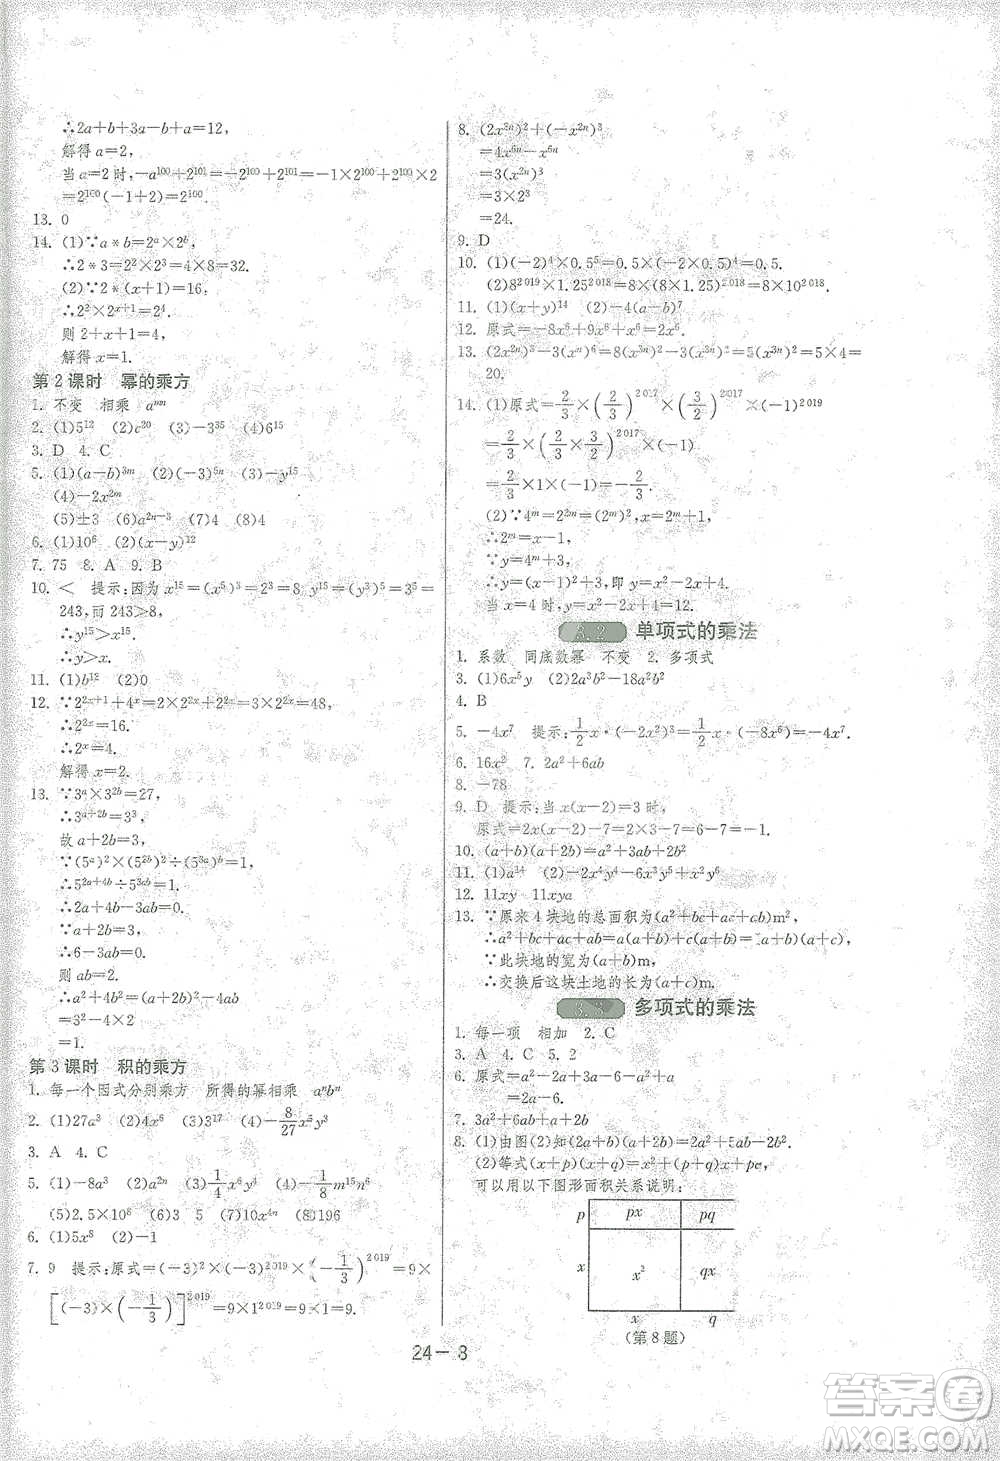 ∴2a+b+3a-b+a=12,
解得 a=2,
当 a=2 时,-a¹⁰⁰+2¹⁰¹=-2¹⁰⁰+2¹⁰¹=-1×2¹⁰⁰+2¹⁰⁰×2
=2¹⁰⁰(-1+2)=2¹⁰⁰.
13. 0
14. (1)∵a*b=2ᵃ×2ᵇ,
∴2*3=2²×2³=4×8=32.
(2)∵2*(x+1)=16,
∴2²×2ˣ⁺¹=2⁴.
则 2+x+1=4,
解得 x=1.
第 2 课时 幂的乘方
1. 不变 相乘 aᵐⁿ
2. (1)5¹² (2)c²⁰ (3)-3³⁵ (4)6¹⁵
3. D 4. C
5. (1)(a-b)³ᵐ (2)(-3)⁵ⁿ (3)-y¹⁵
(4)-2x²ᵐ
(5)±3 (6)a²ⁿ⁻³ (7)4 (8)4
6. (1)10⁶ (2)(x-y)¹⁵
7. 75 8. A 9. B
10. < 提示:因为 x¹⁵=(x⁵)³=2³=8, y¹⁵=(y³)⁵=3⁵=
243,而 243>8,
∴y¹⁵>x¹⁵.
∴y>x.
11. (1)b¹² (2)0
12. ∵2²ˣ⁺¹+4ˣ=2×2²ˣ+2²ˣ=3×2²ˣ=48,
∴2²ˣ=16.
∴2ˣ=4.
解得 x=2.
13. ∵3ᵃ×3²ᵇ=27,
∴3ᵃ⁺²ᵇ=3³,
故 a+2b=3,
∵(5ᵃ)²×(5²ᵇ)²÷(5³ᵃ)ᵇ=1,
∴5²ᵃ⁺⁴ᵇ÷5³ᵃᵇ=1.
∴2a+4b-3ab=0.
∵a+2b=3,
∴6-3ab=0.
则 ab=2.
∴a²+4b²=(a+2b)²-4ab
=3²-4×2
=1.
第 3 课时 积的乘方
1. 每一个因式分别乘方 所得的幂相乘 aⁿbⁿ
2. (1)27a³ (2)4x⁶ (3)3¹⁷ (4)-8/27x⁵y³
3. A 4. C
5. (1)-8a³ (2)a²ⁿ (3)1/4x⁶y⁴ (4)-1/8m¹⁵n
(5)2.5×10⁸ (6)3 5 (7)10x⁴ⁿ (8)196
6. (1)5x⁸ (2)-1
7. 9 提示:原式=(-3)²×(-3)²⁰¹⁹×(-1/3)²⁰¹⁹=9×
[(-3)×(-1/3)]²⁰¹⁹=9×1²⁰¹⁹=9×1=9.
8. (2x²ⁿ)²+(-x²ⁿ)³
=4x⁶ⁿ-x⁶ⁿ
=3(x²ⁿ)³
=3×2³
=24.
9. D
10. (1)(-2)⁴×0.5⁵=0.5×(-2×0.5)⁴=0.5.
(2)8²⁰¹⁹×1.25²⁰¹⁸=8×(8×1.25)²⁰¹⁸=8×10²⁰¹⁸.
11. (1)(x+y)¹⁴ (2)-4(a-b)⁷
12. 原式=-8x⁶+9x⁶+x⁶=2x⁶.
13. (2x²ⁿ)³-3(x³ⁿ)²=8x⁶ⁿ-3x⁶ⁿ=5(x³ⁿ)²=5×4=
20.
14. (1)原式=2/3×(2/3)²⁰¹⁷×(3/2)²⁰¹⁷×(-1)²⁰¹⁹
=2/3×(2/3×3/2)²⁰¹⁷×(-1)
=2/3×1×(-1)=-2/3.
(2)∵4ᵐ=2²ᵐ=(2ᵐ)²,x=2ᵐ+1,
∴2ᵐ=x-1.
∵y=4ᵐ+3,
∴y=(x-1)²+3,即 y=x²-2x+4.
当 x=4 时,y=4²-2×4+4=12.
3.2 单项式的乘法
1. 系数 同底数幂 不变 2. 多项式
3. (1)6x⁵y (2)2a³b²-18a²b²
4. B
5. -4x⁷ 提示:1/2x·(-2x²)³=1/2x·(-8x⁶)=-4x⁷.
6. 16x² 7. 2a²+6ab
8. -78
9. D 提示:当 x(x-2)=3 时,
原式=2x(x-2)-7=2×3-7=6-7=-1.
10. (a+b)(a+2b)=a²+3ab+2b²
11. (1)a¹⁴
12. 11xy 11xya
13. ∵原来 4 块地的总面积为(a²+bc+ac+ab)m²,
∴a²+bc+ac+ab=a(a+b)+c(a+b)=(a+c)(a+b).
∵此块地的宽为(a+b)m,
∴交换后这块土地的长为(a+c)m.
3.3 多项式的乘法
1. 每一项 相加 2. C
3. A 4. C 5. 2
6. 原式=a²-2a+3a-6-a²+a
=2a-6.
7. 3a²+6ab+a+2b
8. (1)由图(2)知(2a+b)(a+2b)=2a²+5ab+2b².
(2)等式(x+p)(x+q)=x²+px+qx+pq,
可以用以下图形面积关系说明:
p px pq
x x² qx
x q
(第 8 题)
24－8
答案卷
MXQE.COM